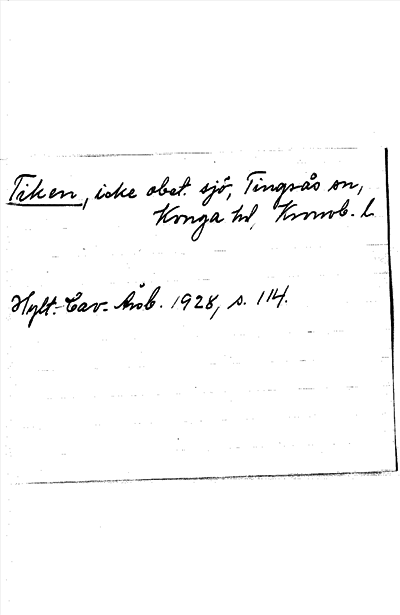 Tiken, icke obet. sjö, Tingsås sn,
Konga hd, Kronob. l.
Hylt.-Cav.- Årsb. 1928, s. 114.